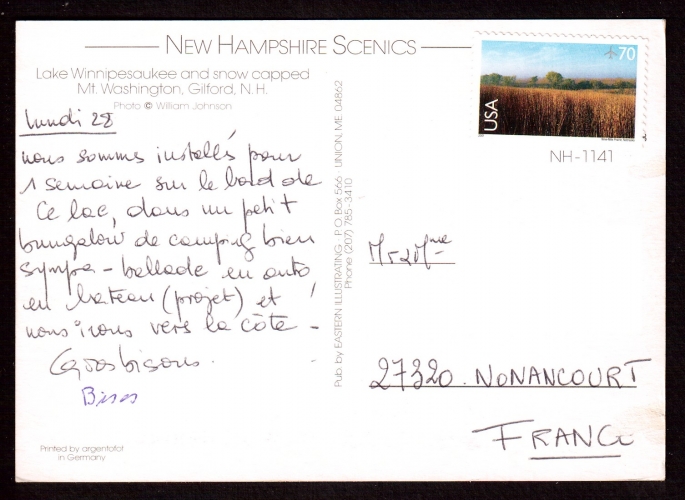 NEW HAMPSHIRE SCENICS
Lake Winnipesaukee and snow capped
Mt. Washington, Gilford, N.H.
Photo © William Johnson
70
USA
NH-1141
lundi 28
nous somms installés pour
1 semaine sur le bord de
ce lac, dans un petit
bungalow de camping bien
sympa - ballade en auto
en bateau (projet) et
nous irons vers la côte -
Gros bisous.
Bises
Printed by argentofot
in Germany
Pub. by EASTERN ILLUSTRATING - P.O. Box 566 - UNION, ME. 04862
Phone (207) 785-3410
27320. NONANCOURT
FRANCE